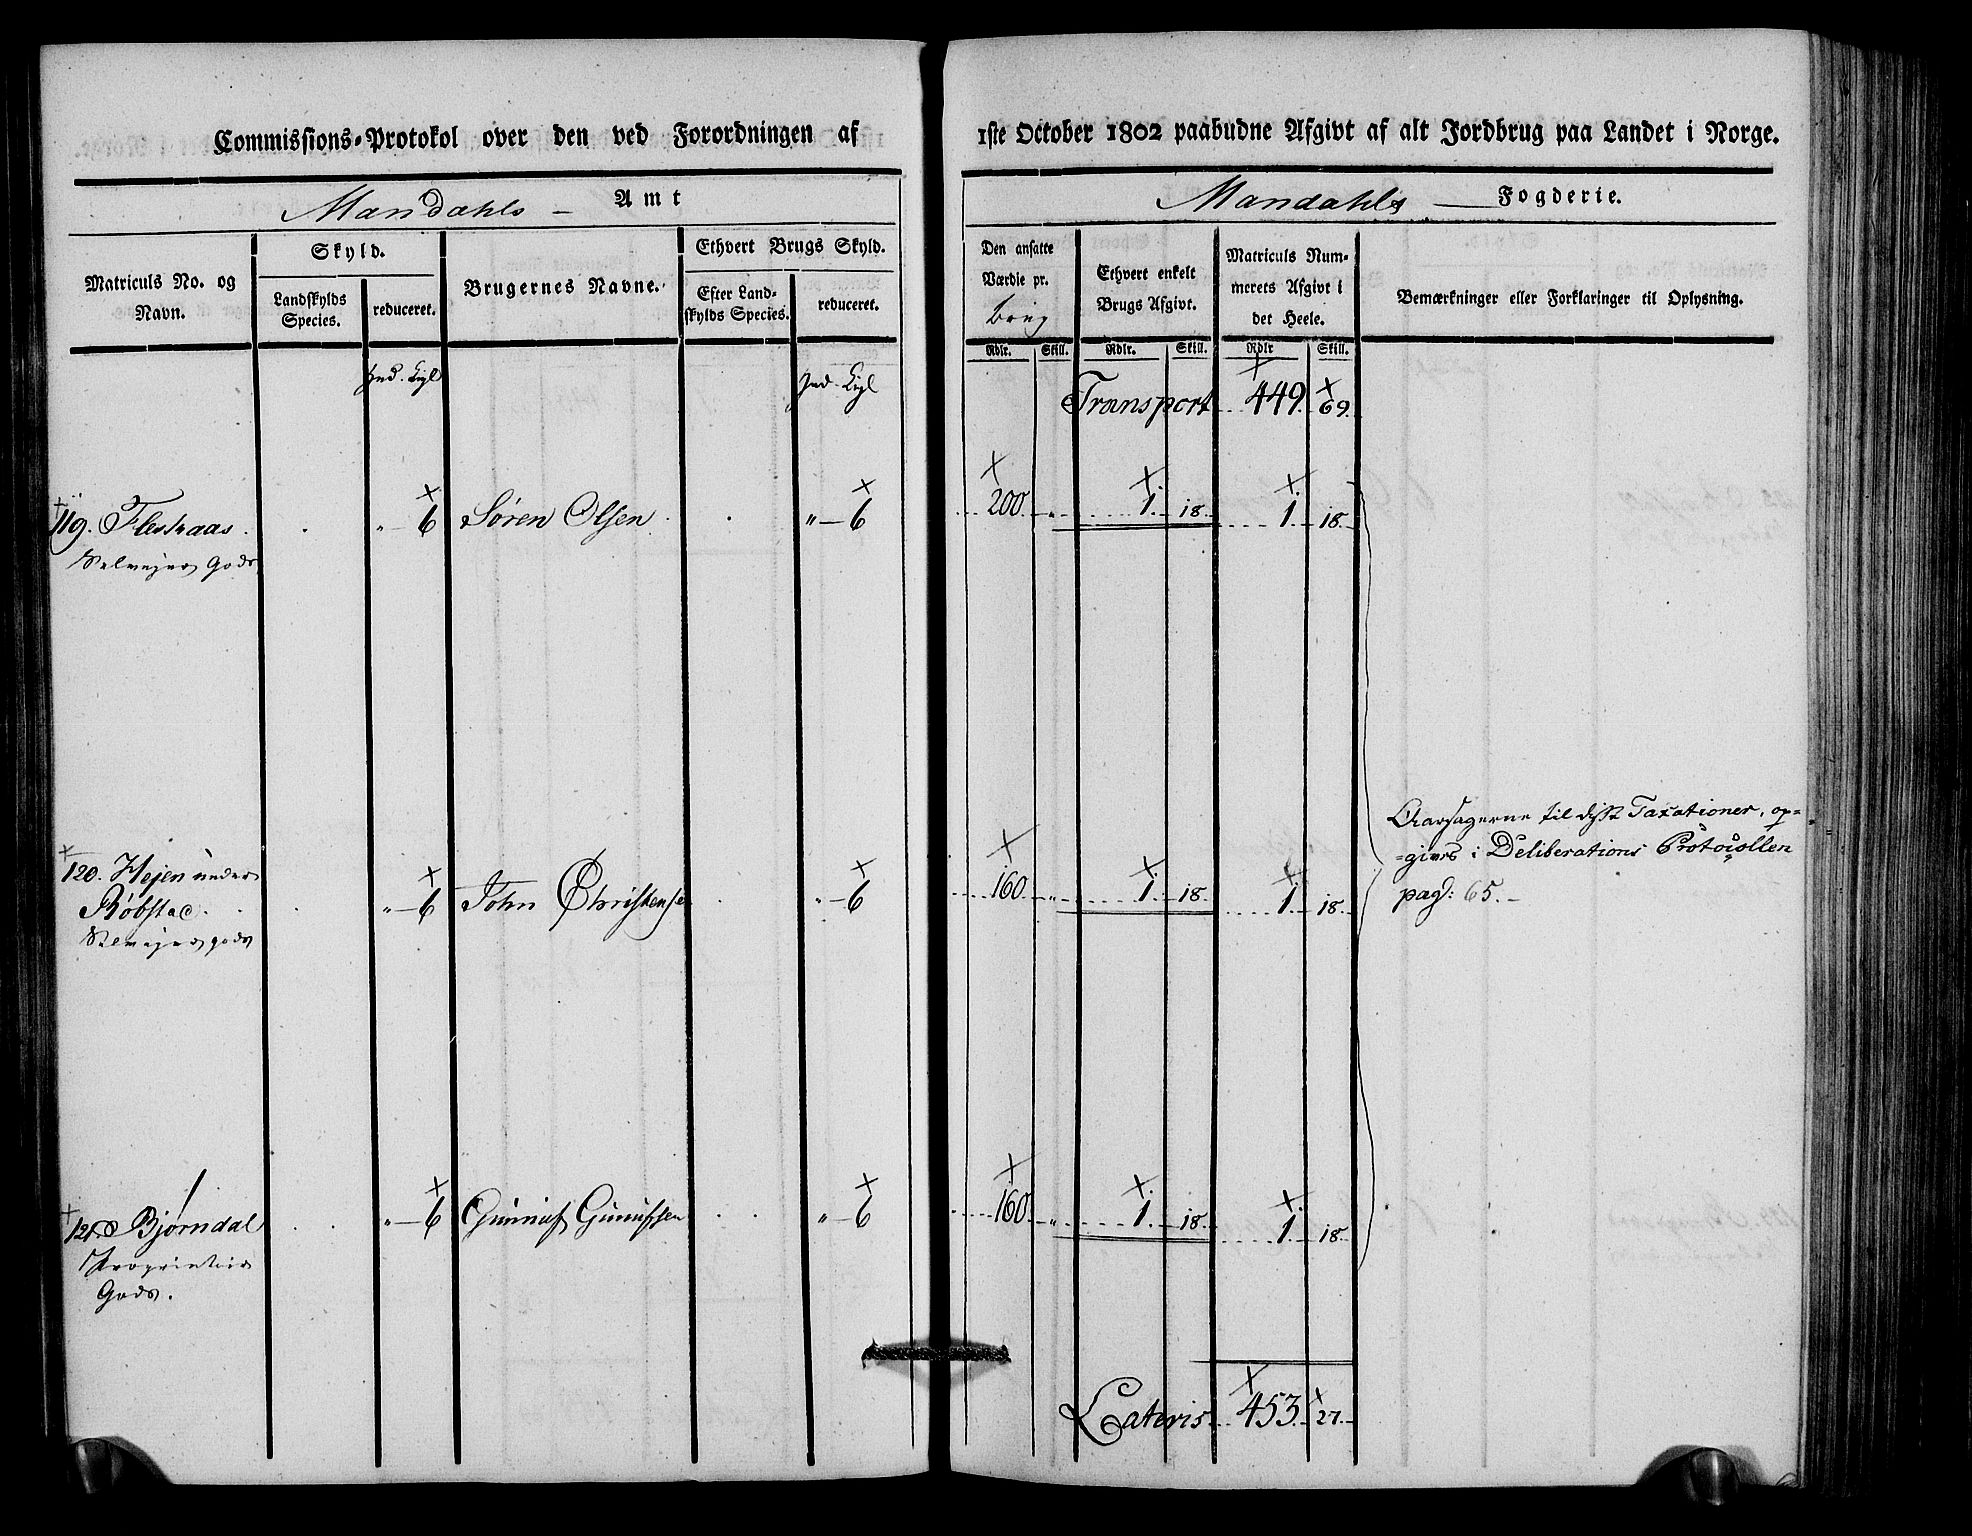 Commissions-Protokol over den ved Forordningen af
Mandahls – Amt
Matriculs No. og Navn.
Skyld.
Landskylds Species.
reduceret.
Brugernes Navne.
Ethvert Brugs Skyld.
Efter Landskylds Species.
reduceret.
Hud. Kigl
Hud. Kigl
119. Flestraas . . „ – 6 Søren Olsen . . „ – 6
Selvejer Gods
120. Hejen under
Røbstad . . „ – 6 John Christense . „ – 6
Selvejer gods
121. Bjørndal . . „ – 6 Gunnuf Gunufsen . . „ – 6
Proprietair
Gods.
1ste October 1802 paabudne Afgivt af alt Jordbrug paa Landet i Norge.
Mandahls – Fogderie.
Den ansatte Værdie pr.
brug
Ethvert enkelt Brugs Afgivt.
Matriculs Nummerets Afgivt i det Heele.
Bemærkninger eller Forklaringer til Oplysning.
Rdlr. Skill. Rdlr. Skill. Rdlr Skill.
Transport 449. 69.
200. „ 1. 18. 1. 18.
Aarsagerne til disse Taxationer, op=
=gives i Deliberations Protocollen
160. „ 1. 18. 1. 18.
pag: 65. –
160. „ 1. 18. 1. 18.
Lateris 453. 27.